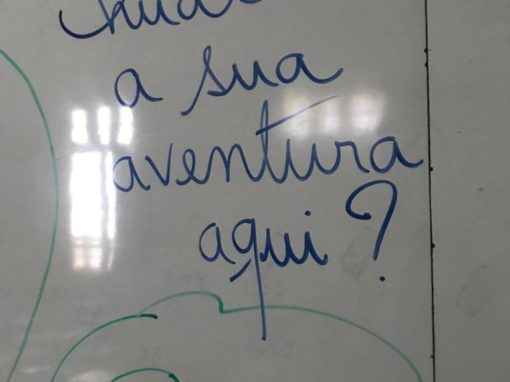 a sua
aventura
aqui?